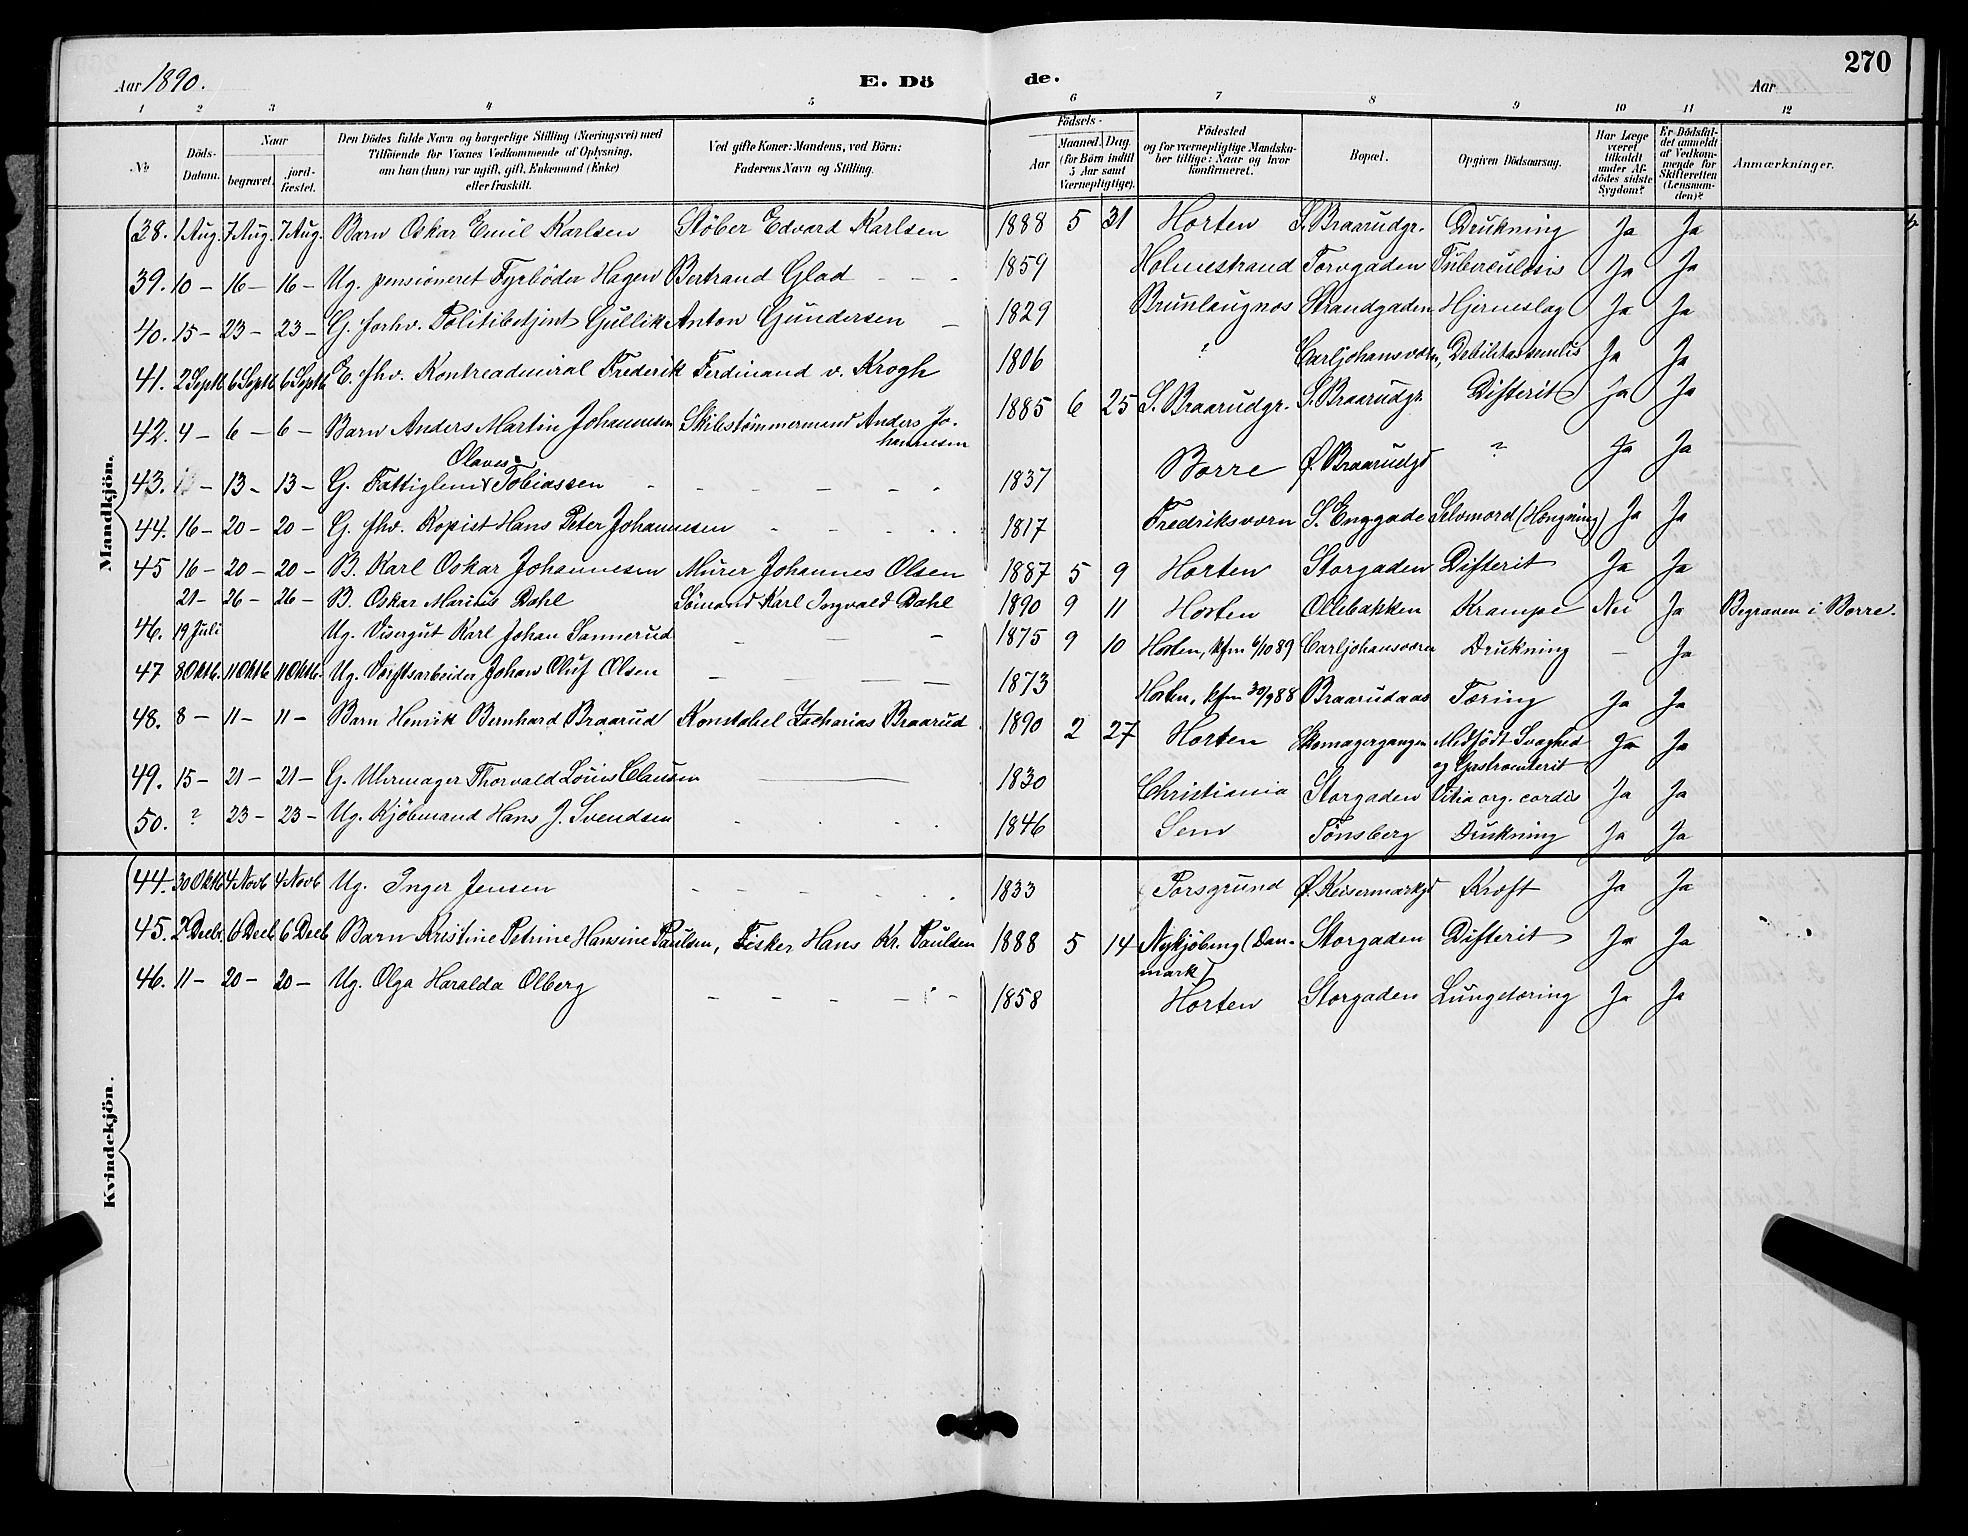 270
Aar 1890.
E. Dö de.
Aar
1 2 3 4 5 6 7 8 9 10 11 12
No
Döds-Datum.
Naar begravet. jordfæstet.
Den Dödes fulde Navn og borgerlige Stilling (Næringsvei) med Tilföiende for Voxnes Vedkommende af Oplysning, om han (hun) var ugift, gift, Enkemand (Enke) eller fraskilt.
Ved gifte Koner: Mandens, ved Börn: Faderens Navn og Stilling.
Födsels-
Aar Maaned. Dag. (for Börn indtil 5 Aar samt Værnepligtige).
Födested og for værnepligtige Mandskaber tillige: Naar og hvor konfirmeret.
Bopæl.
Opgiven Dödsaarsag.
Har Læge været tilkaldt under Afdödes sidste Sygdom?
Er Dödsfaldet anmeldt af Vedkommende for Skifteretten (Lensmanden)?
Anmærkninger.
Mandkjön.
38. 1 Aug. 7 Aug. 7 Aug. Barn Oskar Emil Karlsen Støber Edvard Karlsen 1888 5 31 Horten S. Braarudgr. Drukning Ja Ja
39. 10 – 16 – 16 – Ug. pensioneret Fyrbøder Hagen Bertrand Glad – – – 1859 Holmestrand Torvgaden Tuberculosis Ja Ja
40. 15 – 23 – 23 – G. forhv. Politibetjent Gullik Anton Gundersen – 1829 Brunlaugnæs Strandgaden Hjerneslag Ja Ja
41. 2 Septb 6 Septb 6 Septb E. fhv. Kontreadmiral Frederik Ferdinand v. Krogh 1806 ? Carljohansværn, Debilitas senilis Ja Ja
42. 4 – 6 – 6 – Barn Anders Martin Johannesen Skibstømmermand Anders Jo-
hannesen 1885 6 25 S. Braarudgr. S. Braarudgr. Difterit Ja Ja
Olaves
43. – 13 – 13 – G. Fattiglem Tobiassen – – – – – – 1837 Borre Ø. Braarudgd ? Ja Ja
44. 16 – 20 – 20 – G. fhv. Kopist Hans Peter Johannesen – – – – – 1817 Fredriksværn S. Enggade Selvmord (Hængning) Ja Ja
45 16 – 20 – 20 – B. Karl Oskar Johannesen Murer Johannes Olsen 1887 5 9 Horten Storgaden Difterit Ja Ja
21 – 26 – 26 – B. Oskar Marius Dahl Sømand Karl Ingvald Dahl 1890 9 11 Horten Ollebakken Krampe Nei Ja Begraven i Borre.
46. 19 Juli Ug. Visergut Karl Johan Sannerud – – – 1875 9 10 Horten, kfm 6/10 89 Carljohansværn Drukning – Ja
47 8 Oktb. 11 Oktb. 11 Oktb. Ug. Værftsarbeider Johan Oluf Olsen – – – – 1873 Horten, kfm 30/9 88 Braarudaas Tæring Ja Ja
48. 8 – 11 – 11 – Barn Henrik Bernhard Braarud Konstabel Zacharias Braarud 1890 2 27 Horten Skomagergangen Medfødt Svaghed
og Gastroenterit Ja Ja
49. 15 – 21 – 21 – G. Uhrmager Thorvald Louis Clausen – 1830 Christiania Storgaden Vitia org. cordis Ja Ja
50. ? 23 – 23 – Ug. Kjøbmand Hans J. Svendsen – – – 1846 Sem Tønsberg Drukning Ja Ja
Kvindekjön.
44. 30 Oktb 4 Novb 4 Novb Ug. Inger Jensen – – – – – 1833 Porsgrund Ø. Keisermarkgd Kræft Ja Ja
45. 2 Decbr. 6 Decb 6 Decb Barn Kristine Petrine Hansine Paulsen, Fisker Hans Kr. Paulsen 1888 5 14 Nykjøbing (Dan-
mark) Storgaden Difterit Ja Ja
46. 11 – 20 – 20 – Ug. Olga Haralda Olberg – – – – – 1858 Horten Storgaden Lungetæring Ja Ja